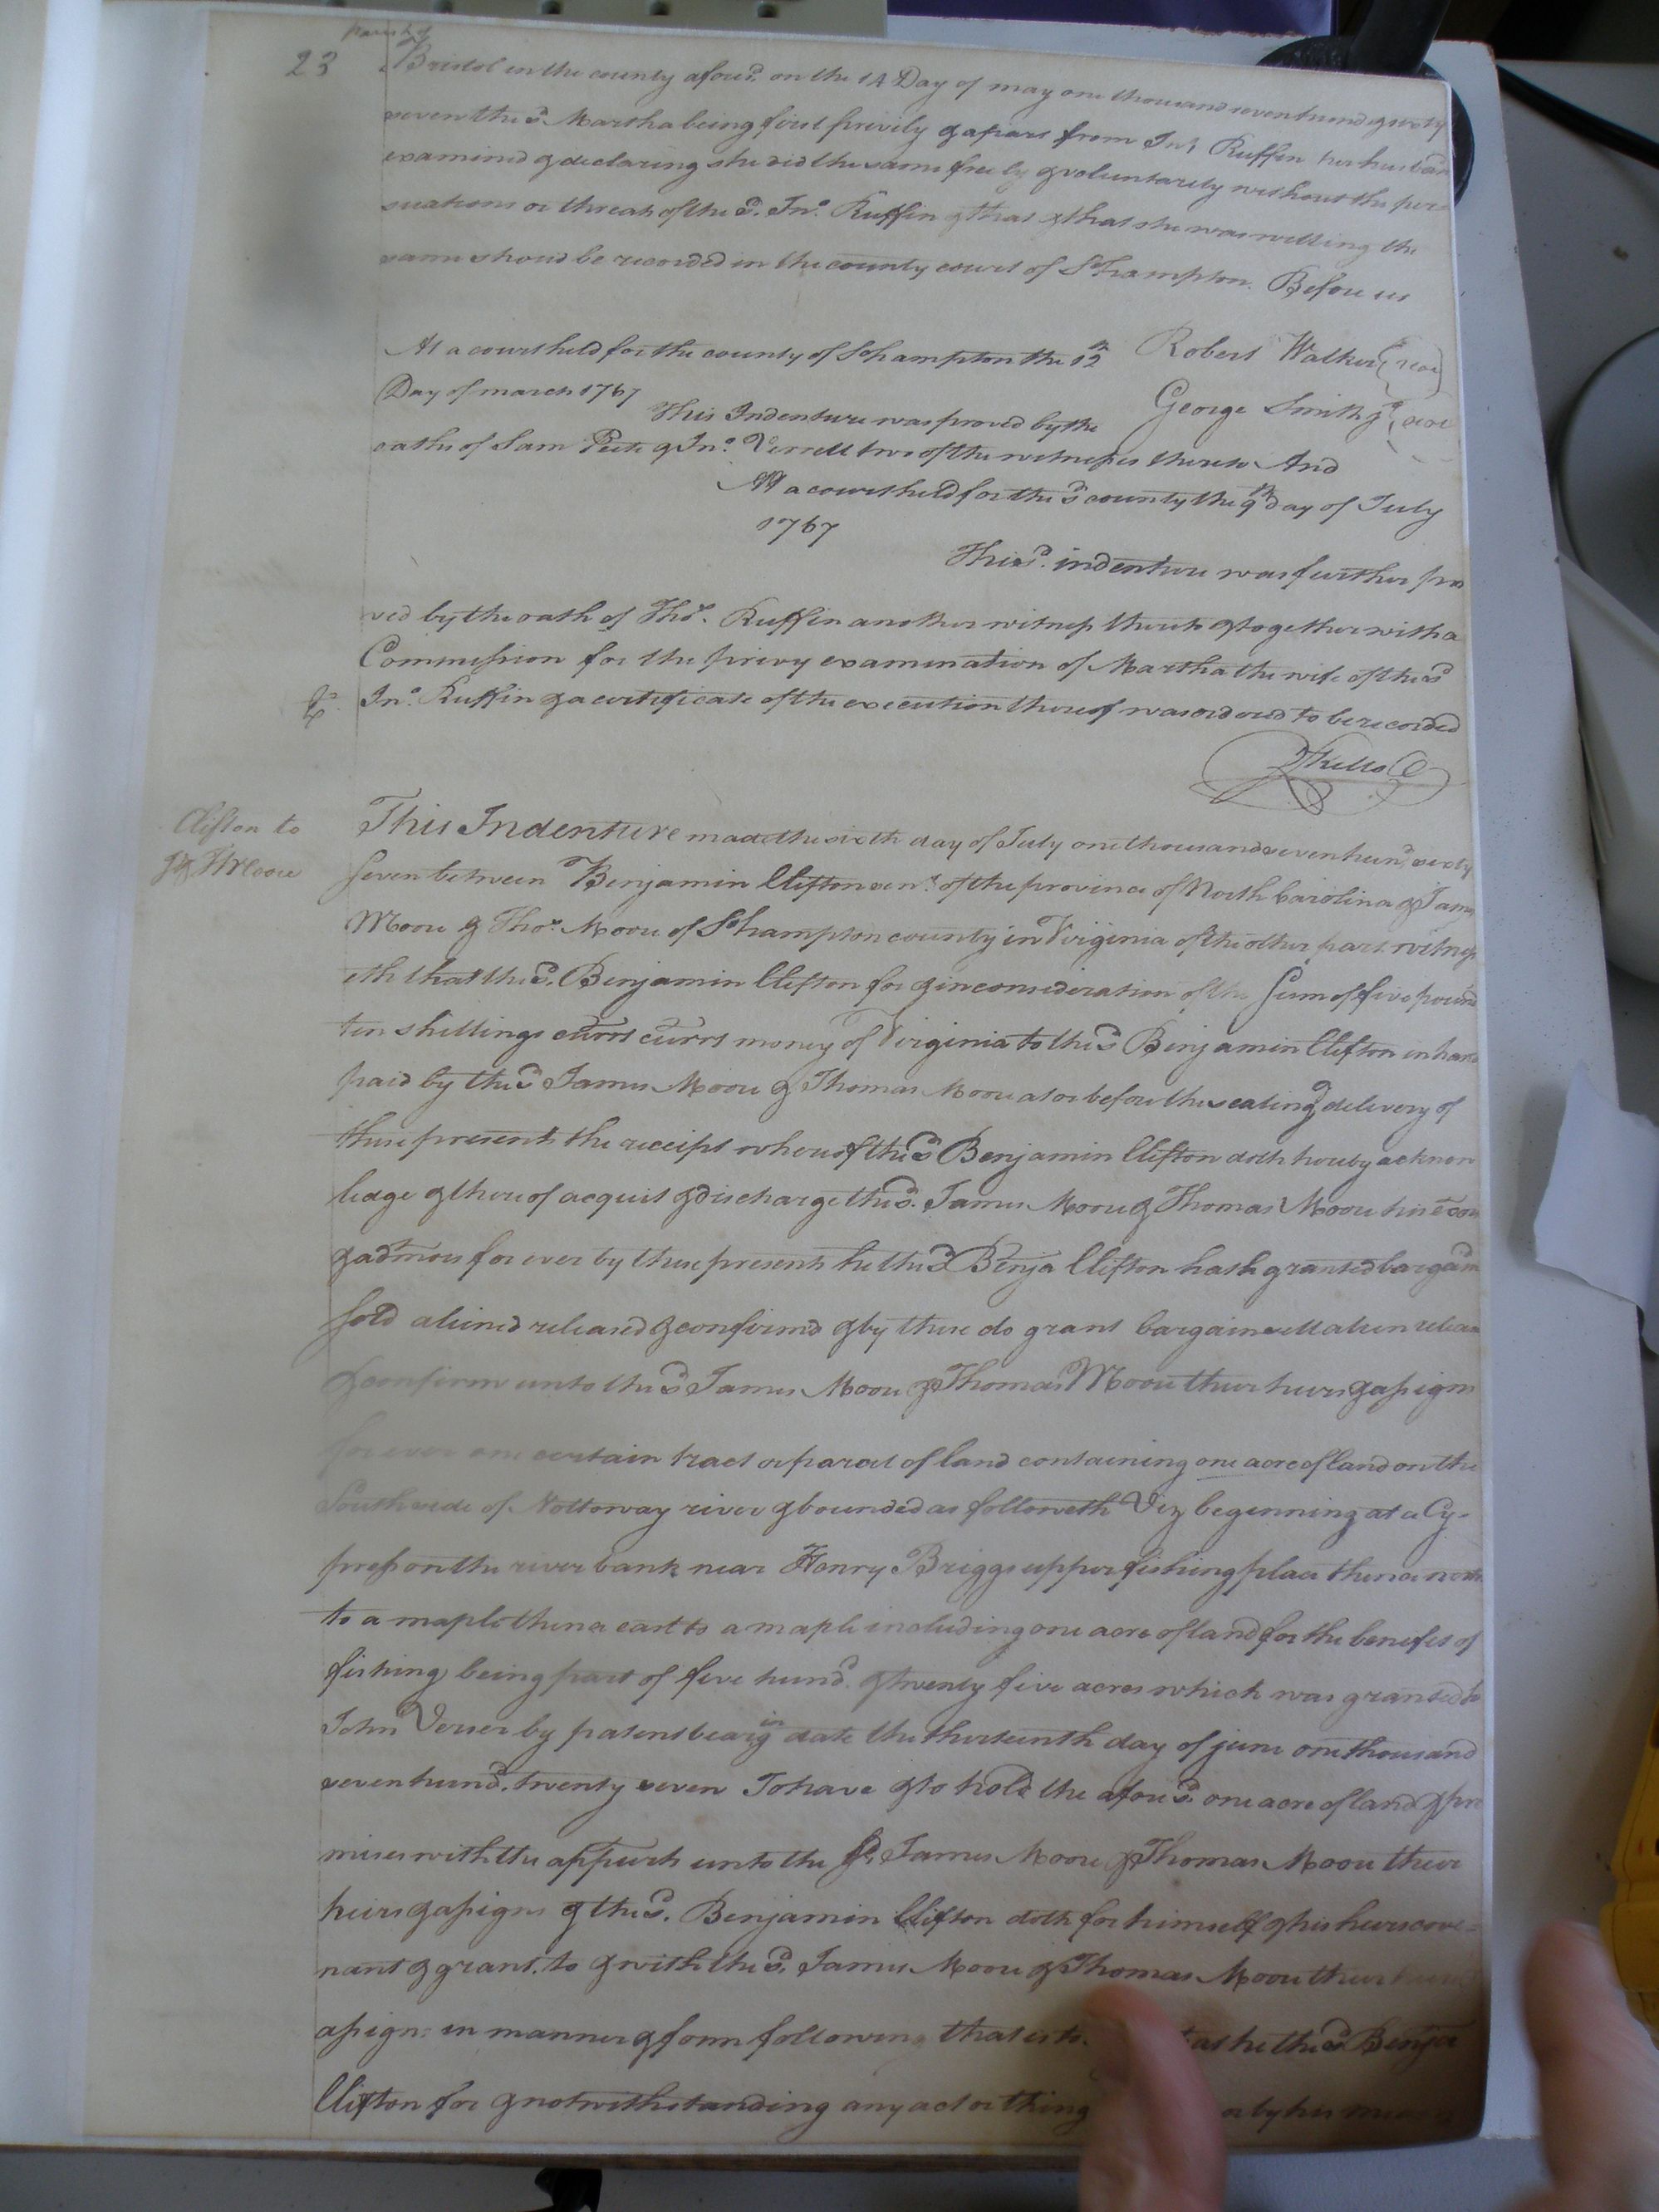 23
parish of
Bristol in the county afores.d on the 14 Day of may one thousand seven hund & sixty
seven the s.d Martha being first privily & apart from Jn.o Ruffin her husban
examined & declaring she did the same freely & voluntarily without the per
suations or threats of the s.d Jn.o Ruffin & that & that she was willing the
same shoud be recorded in the county court of S.o hampton. Before us
At a court held for the county of S.o hampton the 12.th
Robert Walker (seal)
Day of march 1767
George Smith j.r (seal
This Indenture was proved by the
oaths of Sam Peete & Jn.o Verrell two of the witnesses thereto And
At a court held for the s.d county the 9.th day of July
1767
This s.d indenture was further pro
ved by the oath of Tho.s Ruffin another witness thereto & together with a
Commission for the privy examination of Martha the wife of the s.d
Jn.o Ruffin & a certificate of the execution thereof was ordered to be recorded
Clifton to
J & T Moore
This Indenture made the sixth day of July one thousand seven hund.d sixty
seven between Benjamin Clifton sen.r of the province of North Carolina & James
Moore & Tho.s Moore of S.o hampton county in Virginia of the other part witness
eth that the s.d Benjamin Clifton for & in consideration of the Sum of five pound
ten shillings currt currt money of Virginia to the s.d Benjamin Clifton in hand
paid by the s.d James Moore & Thomas Moore at or before the sealing & delivery of
these presents the receipt whereof the s.d Benjamin Clifton doth hereby acknow
ledge & thereof acquit & discharge the s.d James Moore & Thomas Moore
& admors for ever by these presents he the s.d Benja Clifton hath granted bargaind
sold aliened released & confirmd & by these do grant bargain sell alien release
& confirm unto the s.d James Moore & Thomas Moore their heirs & assigns
for ever one certain tract or parcel of land containing one acre of land on the
South side of Nottoway river & bounded as followeth Viz beginning at a Cy-
press on the river bank near Henry Briggs upper fishing place thence north
to a maple thence east to a maple including one acre of land for the benefit of
fishing being part of five hund.d & twenty five acres which was granted to
John Verser by patent bearing date the thirteenth day of june one thousand
seven hund.d twenty seven To have & to hold the afores.d one acre of land & pre
mises with the appurts unto the s.d James Moore & Thomas Moore their
heirs & assigns & the s.d Benjamin Clifton doth for himself & his heirs cove=
nant & grant to & with the s.d James Moore & Thomas Moore their heirs
assigns in manner & form following that is to at he the s.d Benja
Clifton for & notwithstanding any act or thing or by his means